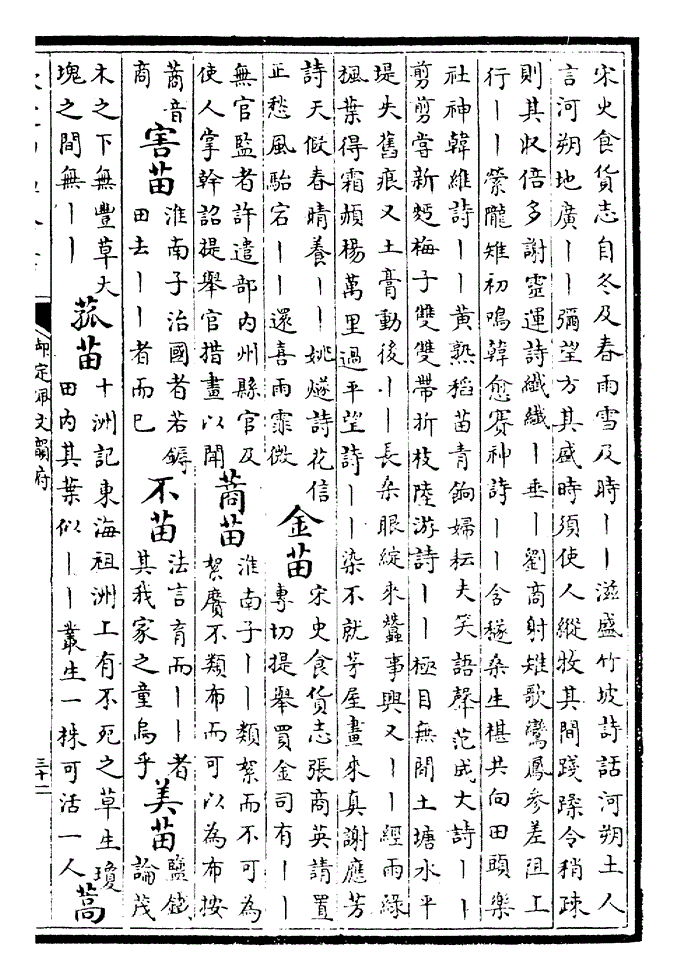 宋史食貨志自冬及春雨雪及時丨丨滋盛竹坡詩話河朔土人
言河朔地廣丨丨彌望方其盛時須使人縱牧其間踐蹂令稍疎
則其収倍多謝靈運詩纖纖丨垂丨劉商射雉歌鸞鳳參差阻工
行丨丨縈隴雉初鳴韓愈賽神詩丨丨含穟桑生椹共向田頭樂
社神韓維詩丨丨黄熟稻苗青餉婦耘夫笑語聲范成大詩丨丨
剪剪嘗新麫梅子雙雙帶折枝陸游詩丨丨極目無閒土塘水平
堤失舊痕又土膏動後丨丨長桑眼綻來蠶事興又丨丨經雨緑
楓葉得霜頳楊萬里過平望詩丨丨染不就茅屋畫來真謝應芳
詩天假春晴養丨丨姚燧詩花信
正愁風駘宕丨丨還喜雨霏微
金苗
宋史食貨志張商英請置
專切提舉買金司有丨丨
無官監者許遣部内州縣官及
使人掌幹詔提舉官措畫以聞
蔏苗
淮南子丨丨類絮而不可為
絮黂不類布而可以為布按
蔏音
商
害苗
淮南子治國者若鎒
田去丨丨者而已
不苗
法言育而丨丨者
其我家之童烏乎
美苗
鹽鐵
論茂
木之下無豐草大
塊之間無丨丨
菰苗
十洲記東海祖洲上有不死之草生瓊
田内其葉似丨丨叢生一株可活一人
蒿
御定佩文韻府
三十二